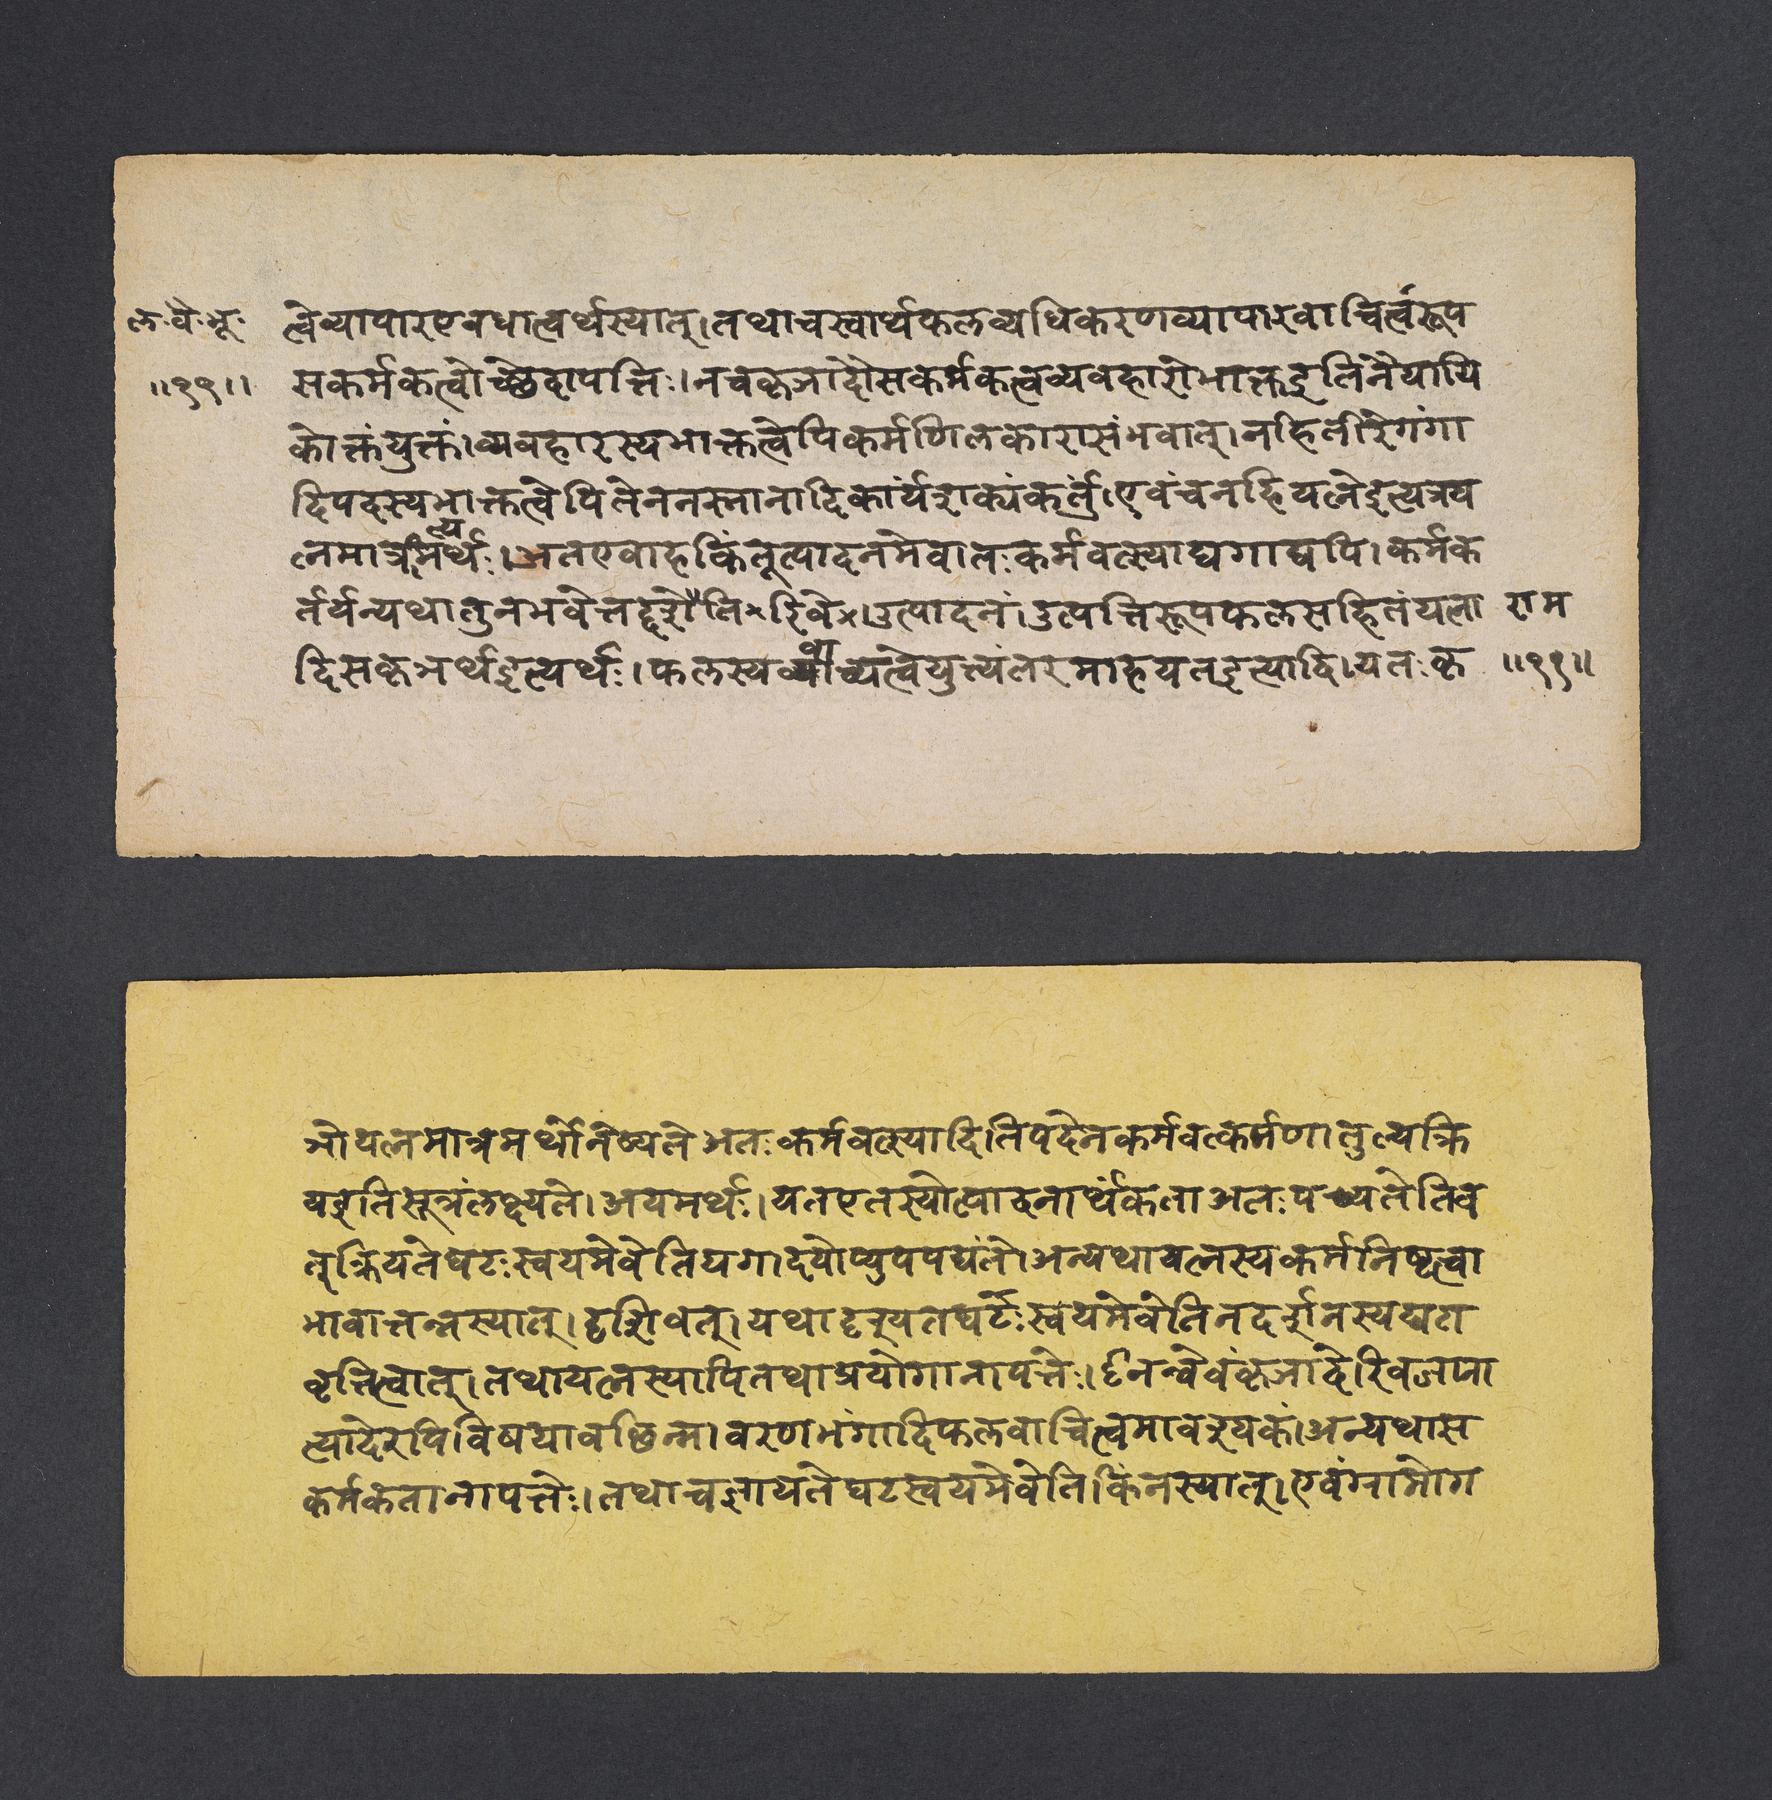 ल॰वै॰भू॰
॥१९॥
त्वेव्यापारएवधात्वर्थस्यात्।तथाचस्वार्थफलव्यधिकरणव्यापारवाचित्वरूप
सकर्मकत्वोच्छेदापत्तिः।नचकृञादौसकर्मकत्वव्यवहारोभाक्तइतिनैयायि
कोक्तंयुक्तं।व्यवहारस्यभाक्तत्वेपिकर्मणिलकारासंभवात्।नहितीरेगंगा
दिपदस्यभाक्तत्वेपितेननस्नानादिकार्यंशक्यंकर्तुं।एवंचनहियत्नेइत्यत्रय
त्नमात्रमित्यर्थः।अतएवाहकिंतूत्पादनमेवातःकर्मवत्स्याद्यगाद्यपि।कर्मक
र्तर्यन्यथातुनभवेत्तद्दृशेरिवेति।उत्पादनं।उत्पत्तिरूपफलसहितंयत्ना
दिसकृञर्थइत्यर्थः।फलस्यवाच्यत्वेयुक्त्यंतरमाहयतइत्यादि।यतःकृ
राम
॥१९॥
ञोयत्नमात्रमर्थोनेष्यतेअतःकर्मवत्स्यादितिपदेनकर्मवत्कर्मणातुल्यक्रि
यइतिसूत्रंलक्ष्यते।अयमर्थः।यतएतस्योत्पादनार्थकताअतःपच्यतेतिव
त्क्रियतेघटःस्वयमेवेतियगादयोप्युपपद्यंते।अन्यथायत्नस्यकर्मनिष्ठत्वा
भावात्तन्नस्यात्।दृशिवत्।यथादृश्यतेघटःस्वयमेवेतिनदर्शनस्यघटा
वृत्तित्वात्।तथायत्नस्यापितथाप्रयोगानापत्तेः।ईनन्वेवंकृञादेरिवजाना
त्यादेरपिविषयावछिन्नावरणभंगादिफलवाचित्वमावश्यकं।अन्यथास
कर्मकतानापत्तेः।तथाचज्ञायतेघटस्वयमेवेतिकिंनस्यात्।एवंग्रामोग